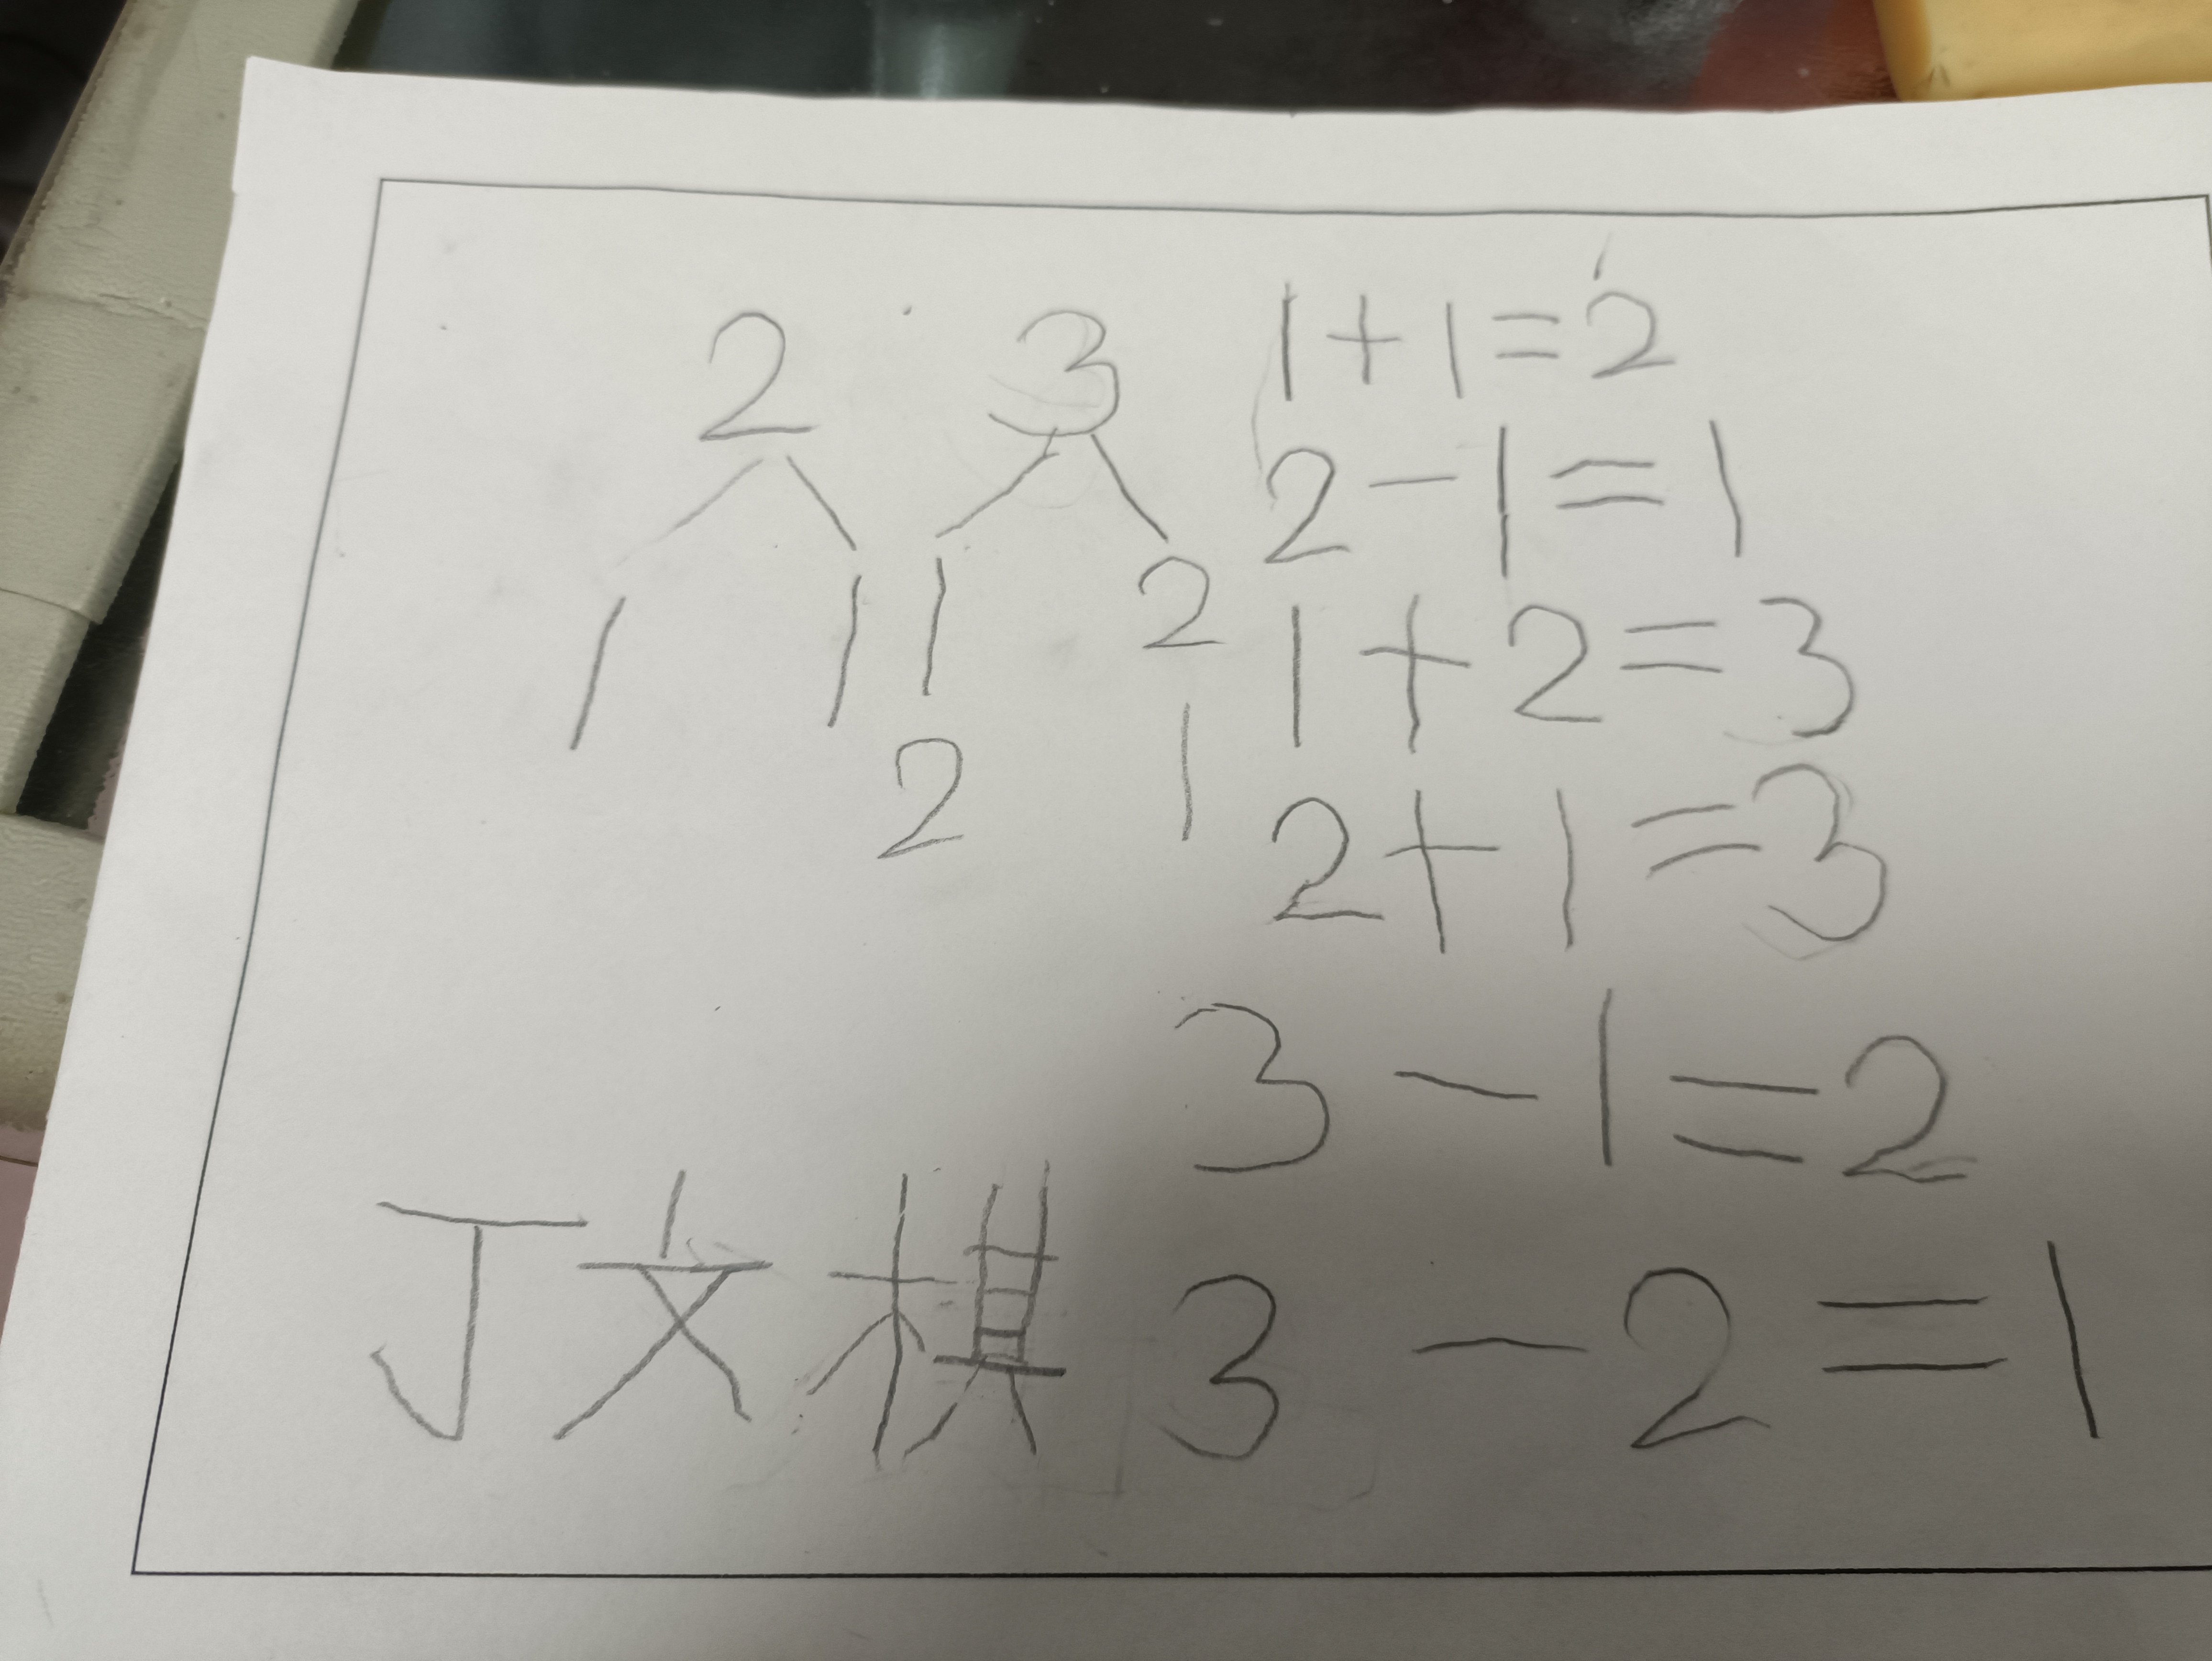 2 3 1+1=2
2-1=1
1 1 1 2 1+2=3
2 1 2+1=3
3-1=2
丁文棋 3-2=1